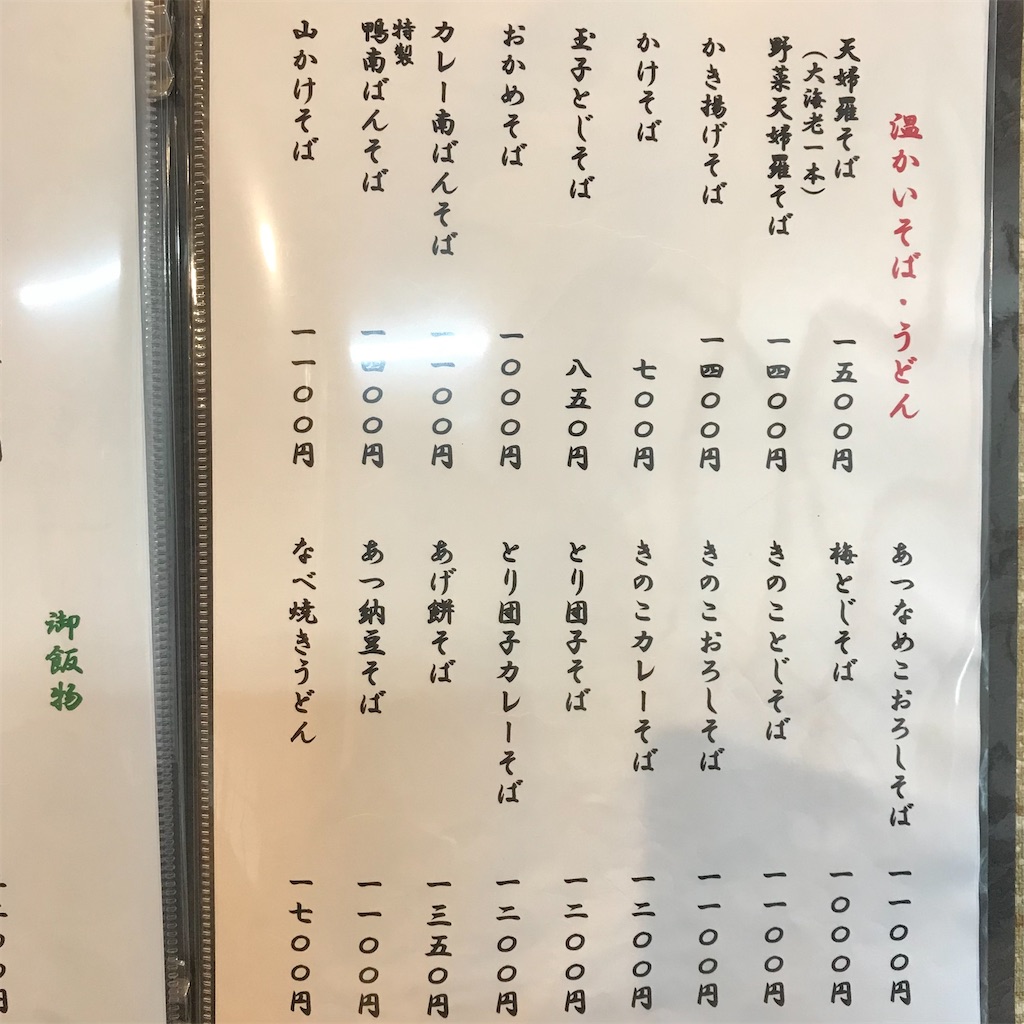 温かいそば・うどん
天婦羅そば
(大海老一本)
一五〇〇円
野菜天婦羅そば
一四〇〇円
かき揚げそば
一四〇〇円
かけそば
七〇〇円
玉子とじそば
八五〇円
おかめそば
一〇〇〇円
カレー南ばんそば
一一〇〇円
特製
鴨南ばんそば
一四〇〇円
山かけそば
一一〇〇円
あつなめこおろしそば
一一〇〇円
梅とじそば
一〇〇〇円
きのことじそば
一一〇〇円
きのこおろしそば
一一〇〇円
きのこカレーそば
一二〇〇円
とり団子そば
一二〇〇円
とり団子カレーそば
一二〇〇円
あげ餅そば
一三五〇円
あつ納豆そば
一一〇〇円
なべ焼きうどん
一七〇〇円
御飯物